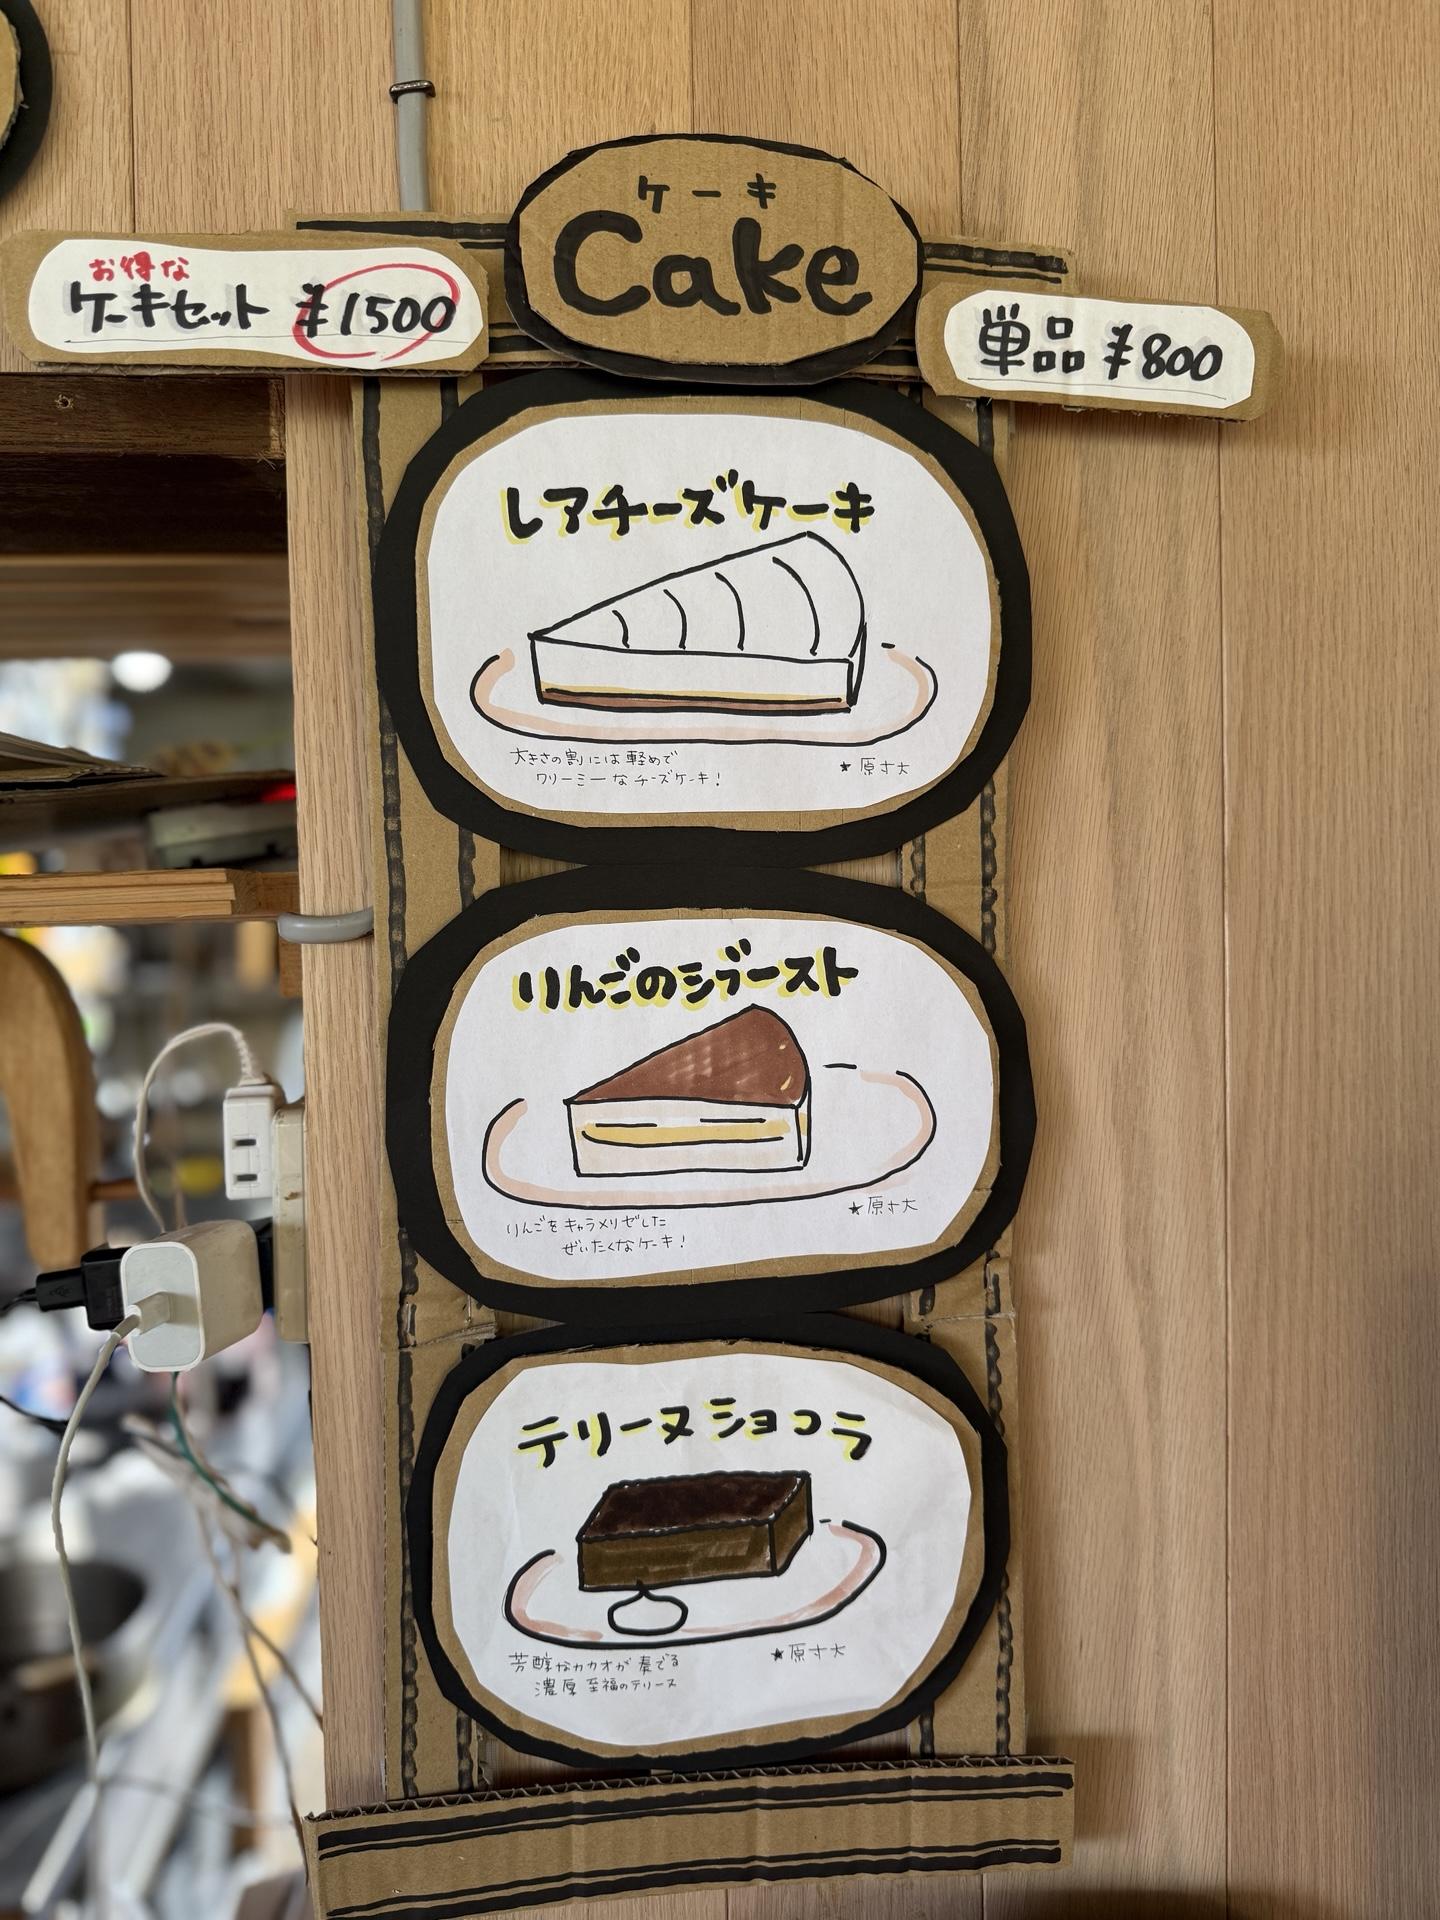 ケーキ
Cake
お得な
ケーキセット ¥1500
単品 ¥800
レアチーズケーキ
大きさの割には軽めで
クリーミーなチーズケーキ!
★原寸大
りんごのシブースト
りんごをキャラメリゼした
ぜいたくなケーキ!
★原寸大
テリーヌショコラ
芳醇なカカオが奏でる
濃厚至福のテリーヌ
★原寸大